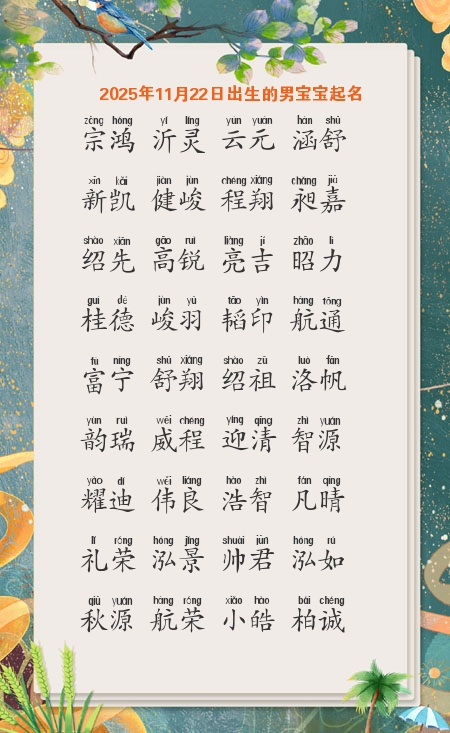 2025年11月22日出生的男宝宝起名
zōng hóng yí líng yún yuán hán shū
宗鸿 沂灵 云元 涵舒
xīn kǎi jiàn jùn chéng xiáng chǎng jiā
新凯 健峻 程翔 昶嘉
shào xiān gāo ruì liàng jí zhāo lì
绍先 高锐 亮吉 昭力
guì dé jùn yǔ tāo yìn háng tōng
桂德 峻羽 韬印 航通
fù níng shū xiáng shào zǔ luò fān
富宁 舒翔 绍祖 洛帆
yùn ruì wēi chéng yíng qīng zhì yuán
韵瑞 威程 迎清 智源
yào dí wěi liáng hào zhì fán qíng
耀迪 伟良 浩智 凡晴
lǐ róng hóng jǐng shuài jūn hóng rú
礼荣 泓景 帅君 泓如
qiū yuán háng róng xiǎo hào bǎi chéng
秋源 航荣 小皓 柏诚